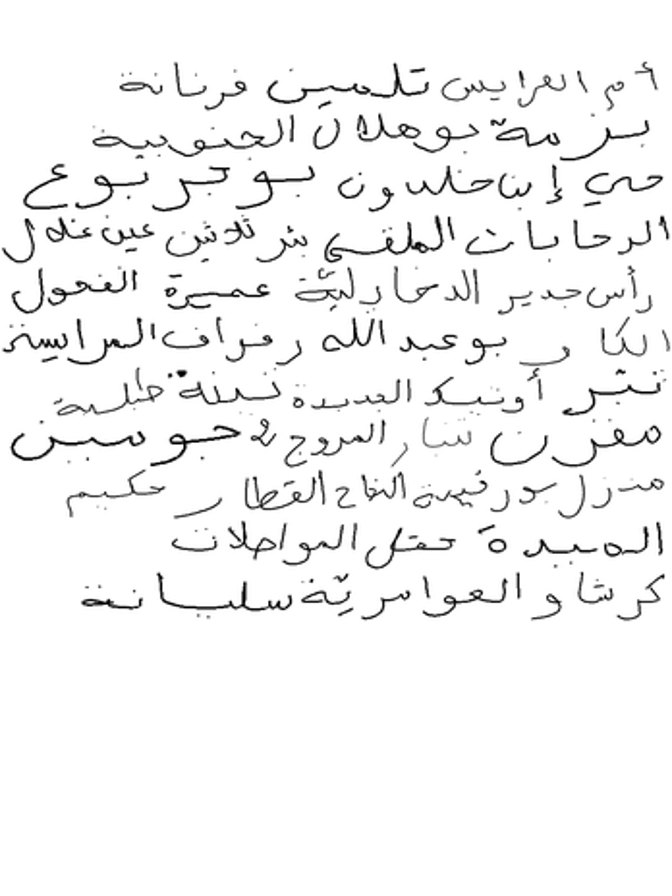 أم العرايس تلمين فرنانة
بزمة بوهلال الجنوبية
حي إبن خلدون بوجربوع
الرحابات الملقى بئر ثلاثين عين غلال
رأس جدير الدخارلية عميرة الفحول
الكاف بوعبد الله رفراف المرايسة
تبر أونيك الجديدة نبنة طلبة
مفزن شار المروج 2 جوسين
منزل بورقيبة النفاح القطار حكيم
الميدة حقل المواصلات
كرشاو العوامرية سليانة